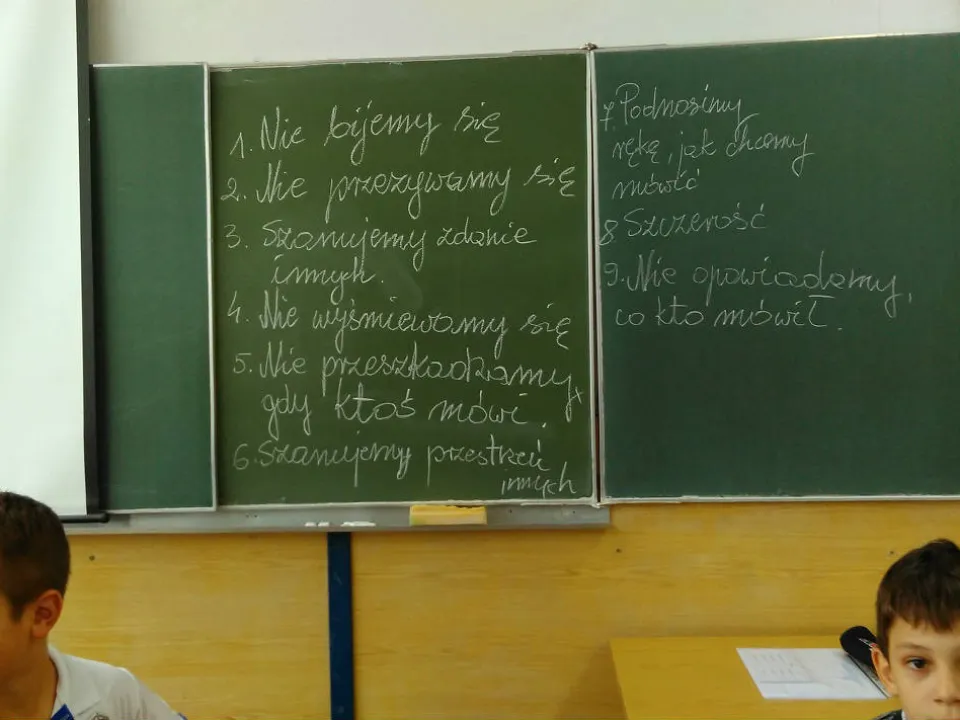 1. Nie bijemy się
2. Nie przezywamy się
3. Szanujemy zdanie
innych.
4. Nie wyśmiewamy się
5. Nie przeszkadzamy,
gdy ktoś mówi.
6. Szanujemy przestrzeń
innych
7. Podnosimy
rękę, jak chcemy
mówić
8 Szczerość
9. Nie opowiadamy,
co kto mówił.